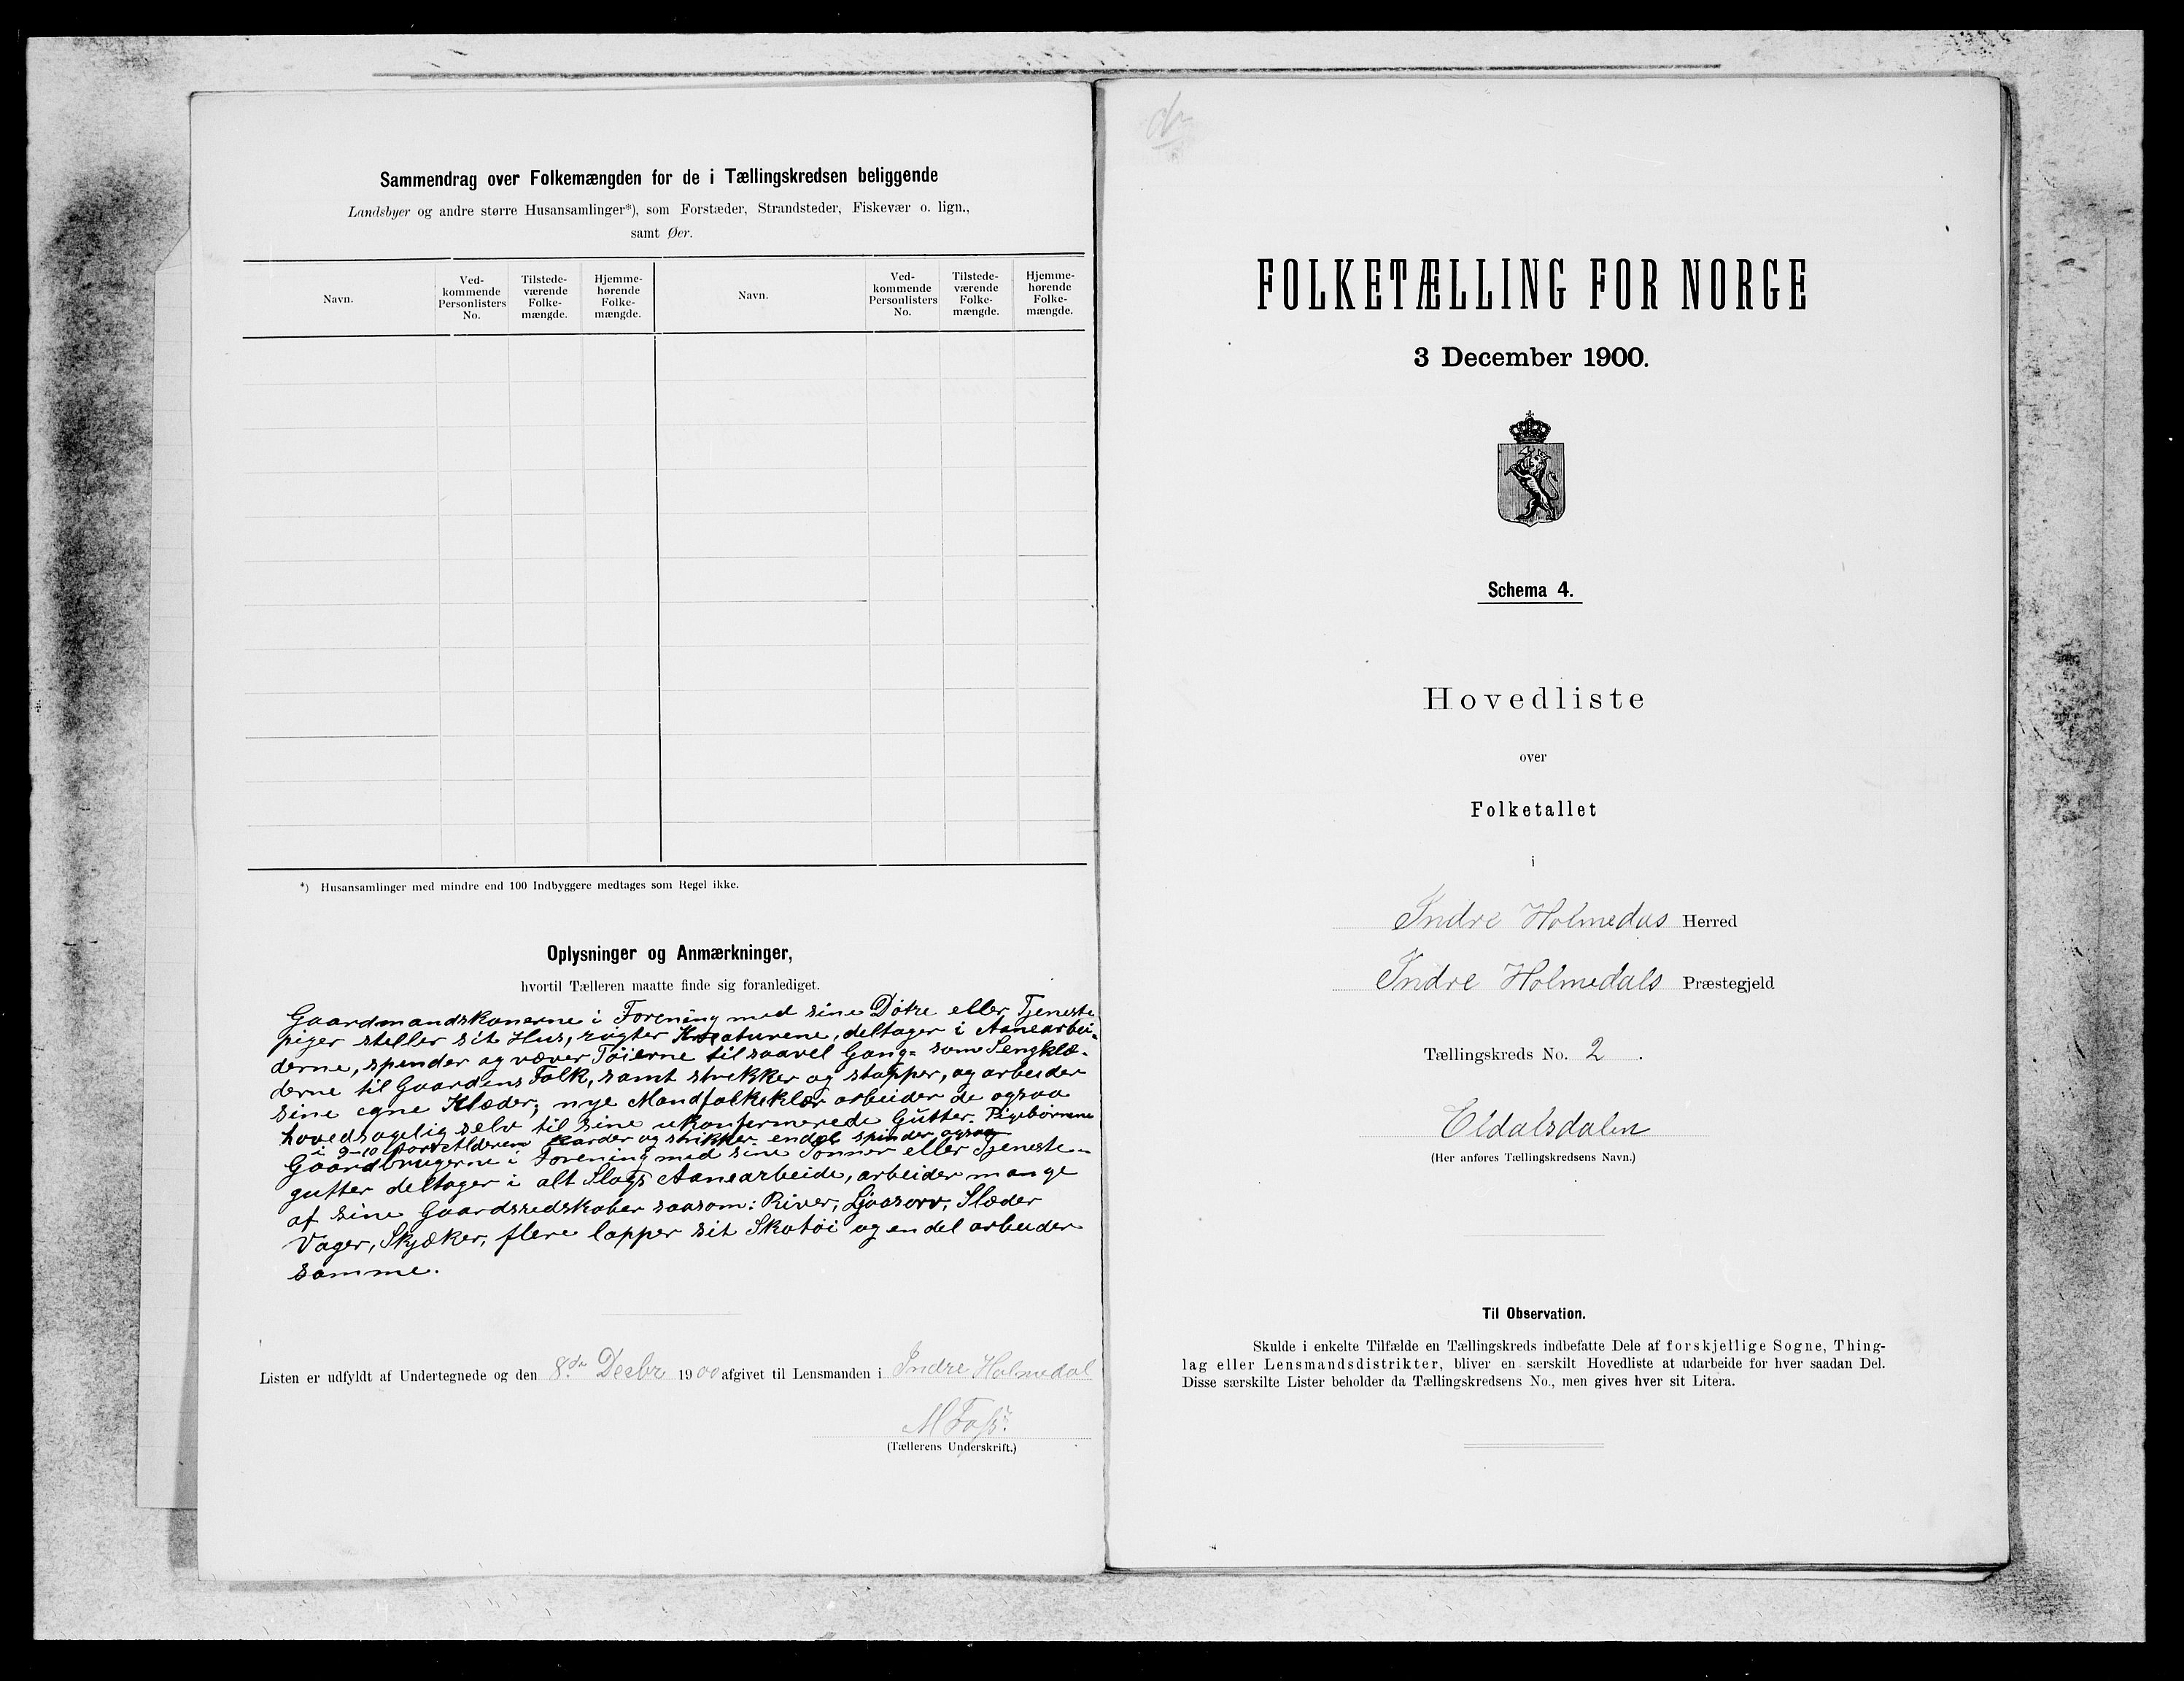 Sammendrag over Folkemængden for de i Tællingskredsen beliggende
Landsbyer og andre større Husansamlinger*), som Forstæder, Strandsteder, Fiskevær o. lign.,
samt Øer.
Navn.
Ved-
kommende
Personlisters
No.
Tilstede-
værende
Folke-
mængde.
Hjemme-
hørende
Folke-
mængde.
Navn.
Ved-
kommende
Personlisters
No.
Tilstede-
værende
Folke-
mængde.
Hjemme-
hørende
Folke-
mængde.
*) Husansamlinger med mindre end 100 Indbyggere medtages som Regel ikke.
Oplysninger og Anmærkninger,
hvortil Tælleren maatte finde sig foranlediget.
Gaardmandskonerne i Forening med sine Døtre eller Tjeneste
piger steller sit Hus, røgter Kreaturene, deltager i Aanearbei-
derne, spinder og væver Tøierne til saavel Gang- som Sengklæ-
derne til Gaardens Folk, samt strikker og stopper, og arbeider
sine egne Klæder; nye Mandfolksklær arbeider de ogsaa
hovedsagelig selv til sine ukonfermerede Gutter. Pigebørnene
i 9-10 Alderen karder og strikker endel spinder ogsaa
Gaardbrugerne i Forening med sine Sønner eller Tjeneste-
gutter deltager i alt Slags Aanearbeide, arbeider mange
af sine Gaardsredskaber saasom: River, Ljaaorv, Slæder
Vager, Skjæker, flere lapper sit Skotøi og en del arbeider
samme.
Listen er udfyldt af Undertegnede og den 8de Decbr 1900 afgivet til Lensmanden i Indre Holmedal
(Tællerens Underskrift.)
FOLKETÆLLING FOR NORGE
3 December 1900.
Schema 4.
Hovedliste
over
Folketallet
i
Indre Holmedas Herred
Indre Holmedals Præstegjeld
Tællingskreds No. 2.
Eldalsdalen
(Her anføres Tællingskredsens Navn.)
Til Observation.
Skulde i enkelte Tilfælde en Tællingskreds indbefatte Dele af forskjellige Sogne, Thing-
lag eller Lensmandsdistrikter, bliver en særskilt Hovedliste at udarbeide for hver saadan Del.
Disse særskilte Lister beholder da Tællingskredsens No., men gives hver sit Litera.